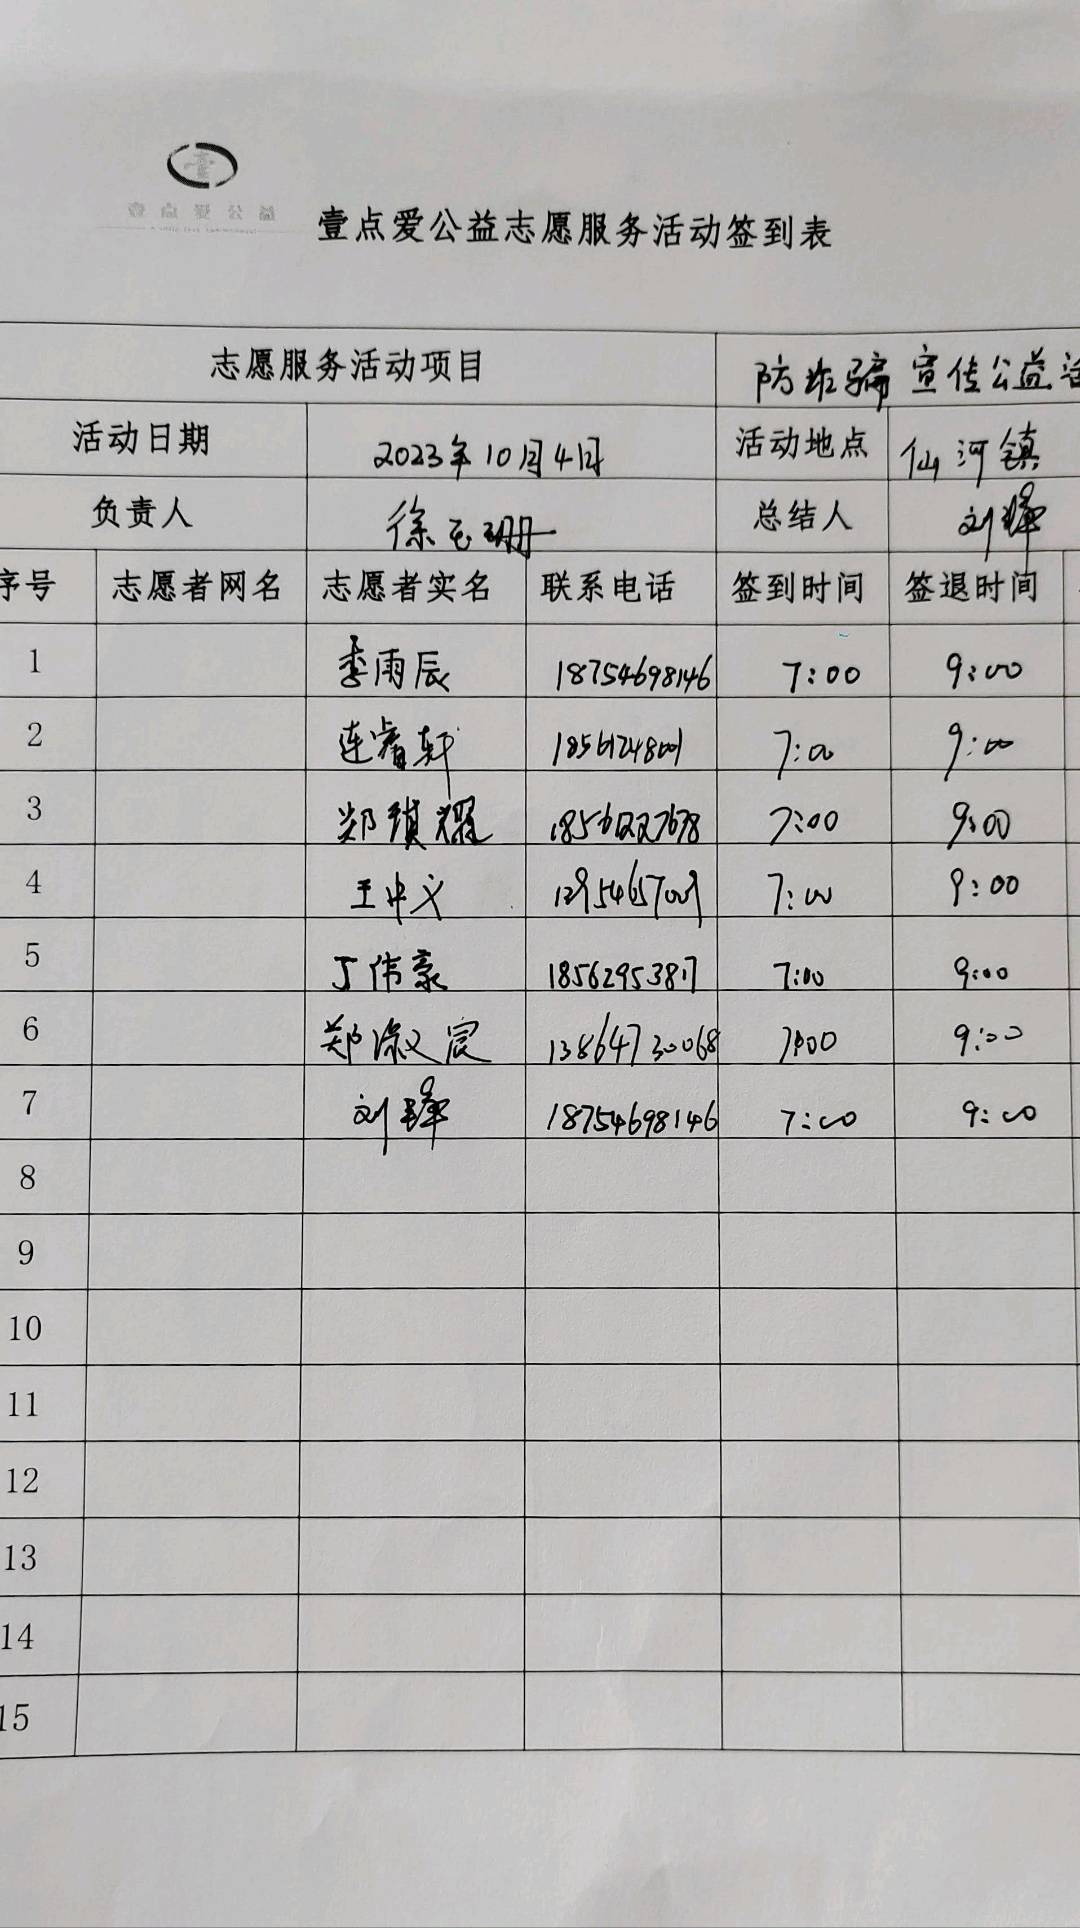 壹点爱公益
壹点爱公益志愿服务活动签到表
志愿服务活动项目 防诈骗宣传公益活
活动日期 2023年10月4日 活动地点 仙河镇
负责人 徐玉珊 总结人 刘铎
序号 志愿者网名 志愿者实名 联系电话 签到时间 签退时间
1 李雨辰 18754698146 7:00 9:00
2 连睿轩 7:00 9:00
3 郑耀 7:00 9:00
4 王中义 7:00 9:00
5 丁伟豪 18562953817 7:00 9:00
6 郑淑宸 13864730068 7:00 9:00
7 刘铎 18754698146 7:00 9:00
8
9
10
11
12
13
14
15